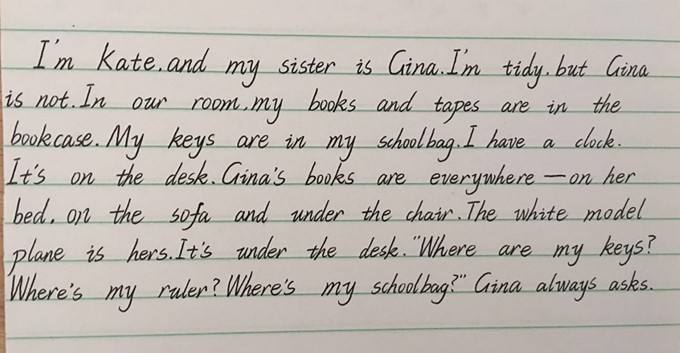 I'm Kate, and my sister is Gina. I'm tidy, but Gina
is not. In our room, my books and tapes are in the
bookcase. My keys are in my schoolbag. I have a clock.
It's on the desk. Gina's books are everywhere — on her
bed, on the sofa and under the chair. The white model
plane is hers. It's under the desk. "Where are my keys?
Where's my ruler? Where's my schoolbag?" Gina always asks.